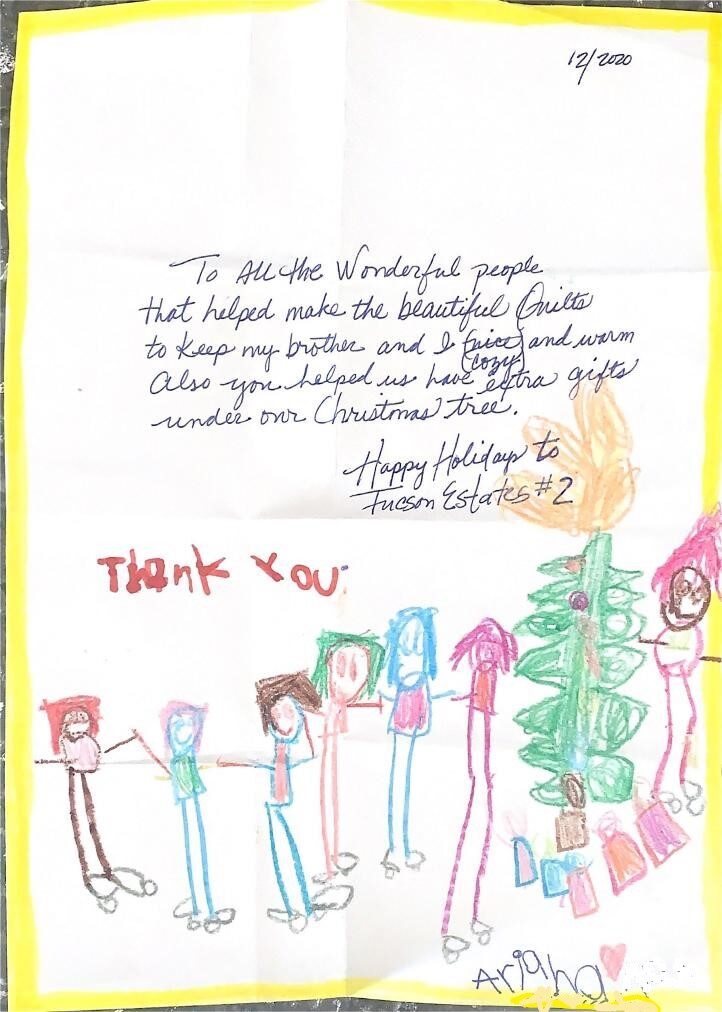 12/2020
To All the Wonderful people
that helped make the beautiful Quilts
to keep my brother and I (nice) and warm
(cozy)
Also you helped us have extra gifts
under our Christmas tree.
Happy Holidays to
Tucson Estates #2
Thank You
Ariana